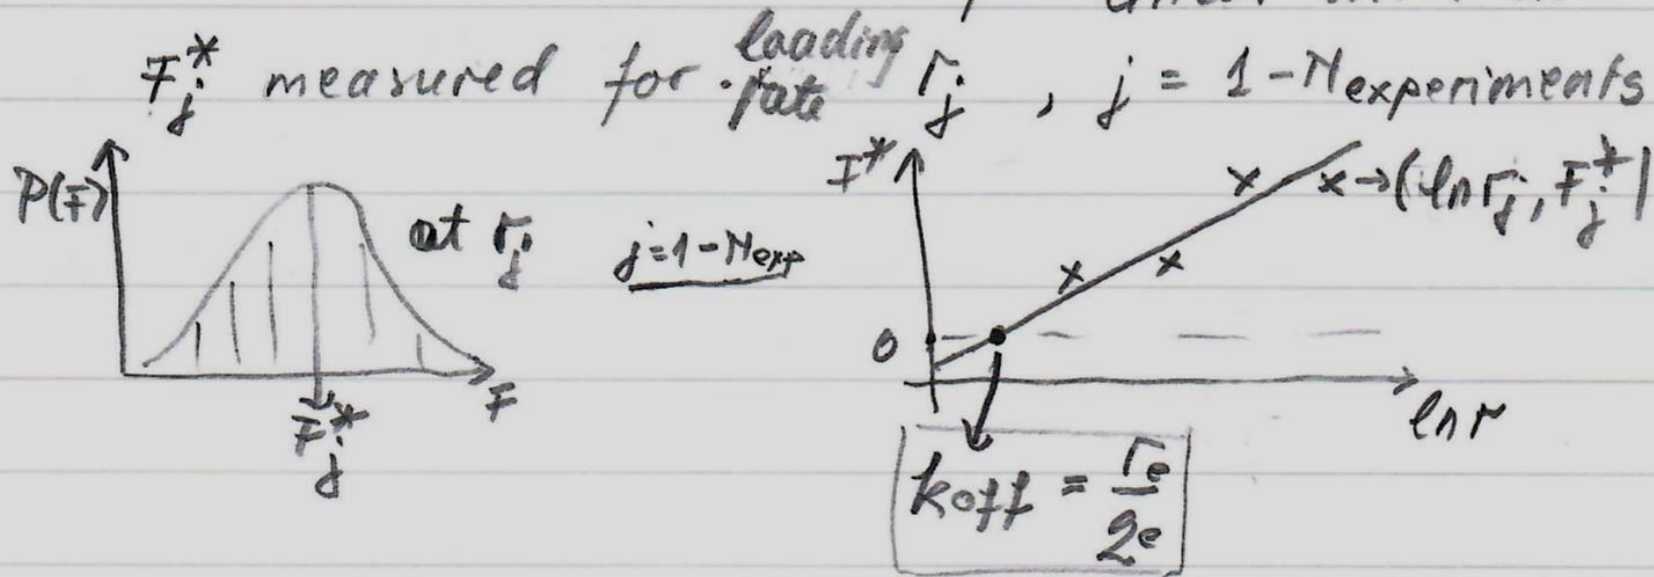 F*j measured for loading rate rj , j = 1 - Nexperiments
P(F)
at rj
j=1-Nexp
F*
→(ln rj, F*j)
0
F
F*j
ln r
koff = re/2e